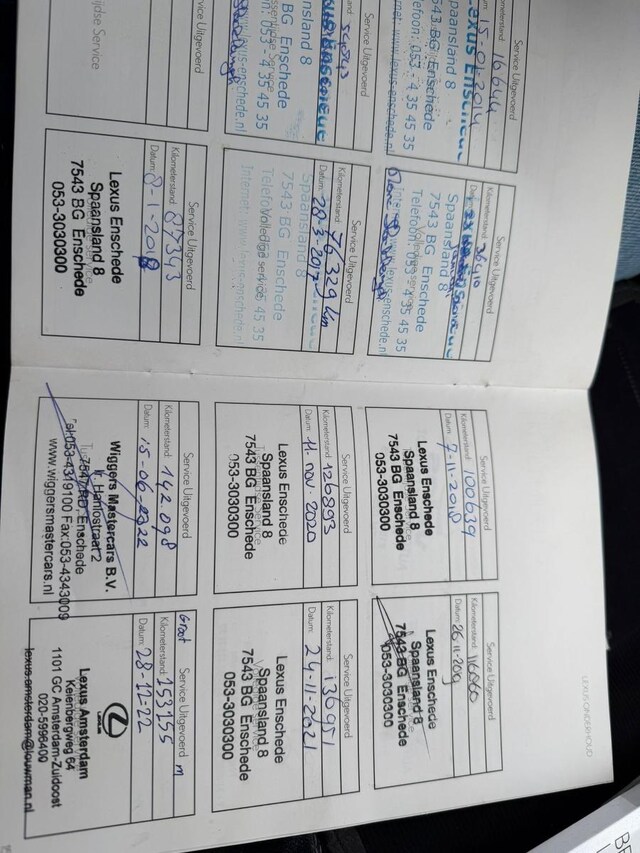 Service Uitgevoerd
Kilometerstand: 16644
15-01-2014
Lexus Enschede
Spaansland 8
7543 BG Enschede
Telefoon: 053 - 4 35 45 35
Internet: www.lexus-enschede.nl
Service Uitgevoerd
Kilometerstand: 36410
Spaansland 8
7543 BG Enschede
Telefoon: 053 - 4 35 45 35
Internet: www.lexus-enschede.nl
Service Uitgevoerd
Spaansland 8
BG Enschede
053 - 4 35 45 35
lexus-enschede.nl
Service Uitgevoerd
Kilometerstand: 76329 km
Datum: 28-3-2017
Spaansland 8
7543 BG Enschede
Volledige service
Internet: www.lexus-enschede.nl
Service Uitgevoerd
Service
Service Uitgevoerd
Kilometerstand: 87343
Datum: 8-1-2018
Lexus Enschede
Spaansland 8
7543 BG Enschede
053-3030300
LEXUS ONDERHOUD
Service Uitgevoerd
Kilometerstand: 100639
Datum: 7-11-2018
Lexus Enschede
Spaansland 8
7543 BG Enschede
053-3030300
Service Uitgevoerd
Kilometerstand:
Datum: 26-11-2019
Lexus Enschede
Spaansland 8
7543 BG Enschede
053-3030300
Service Uitgevoerd
Kilometerstand: 126893
Datum: 11. nov. 2020
Lexus Enschede
Spaansland 8
7543 BG Enschede
053-3030300
Service Uitgevoerd
Kilometerstand: 136951
Datum: 24-11-2021
Lexus Enschede
Spaansland 8
7543 BG Enschede
053-3030300
Service Uitgevoerd
Kilometerstand: 142.098
Datum: 15-06-2022
Wiggers Mastercars B.V.
Ir. Hanlostraat 2
Enschede
053-4319100 Fax:053-4343009
www.wiggersmastercars.nl
Groot Service Uitgevoerd
Kilometerstand: 153155
Datum: 28-12-22
Lexus Amsterdam
Keienbergweg 64
1101 GC Amsterdam-Zuidoost
020-5996400
lexus.amsterdam@louwman.nl